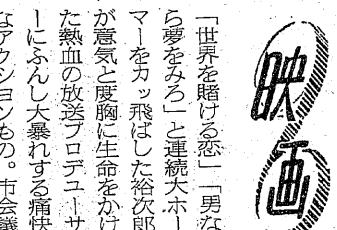 映画
「世界を賭ける恋」「男な
ら夢をみろ」と連続大ホー
マーをカッ飛ばした裕次郎
が意気と度胸に生命をかけ
た熱血の放送プロデューサ
ーにふんし大暴れする痛快
なアクションもの。市会議